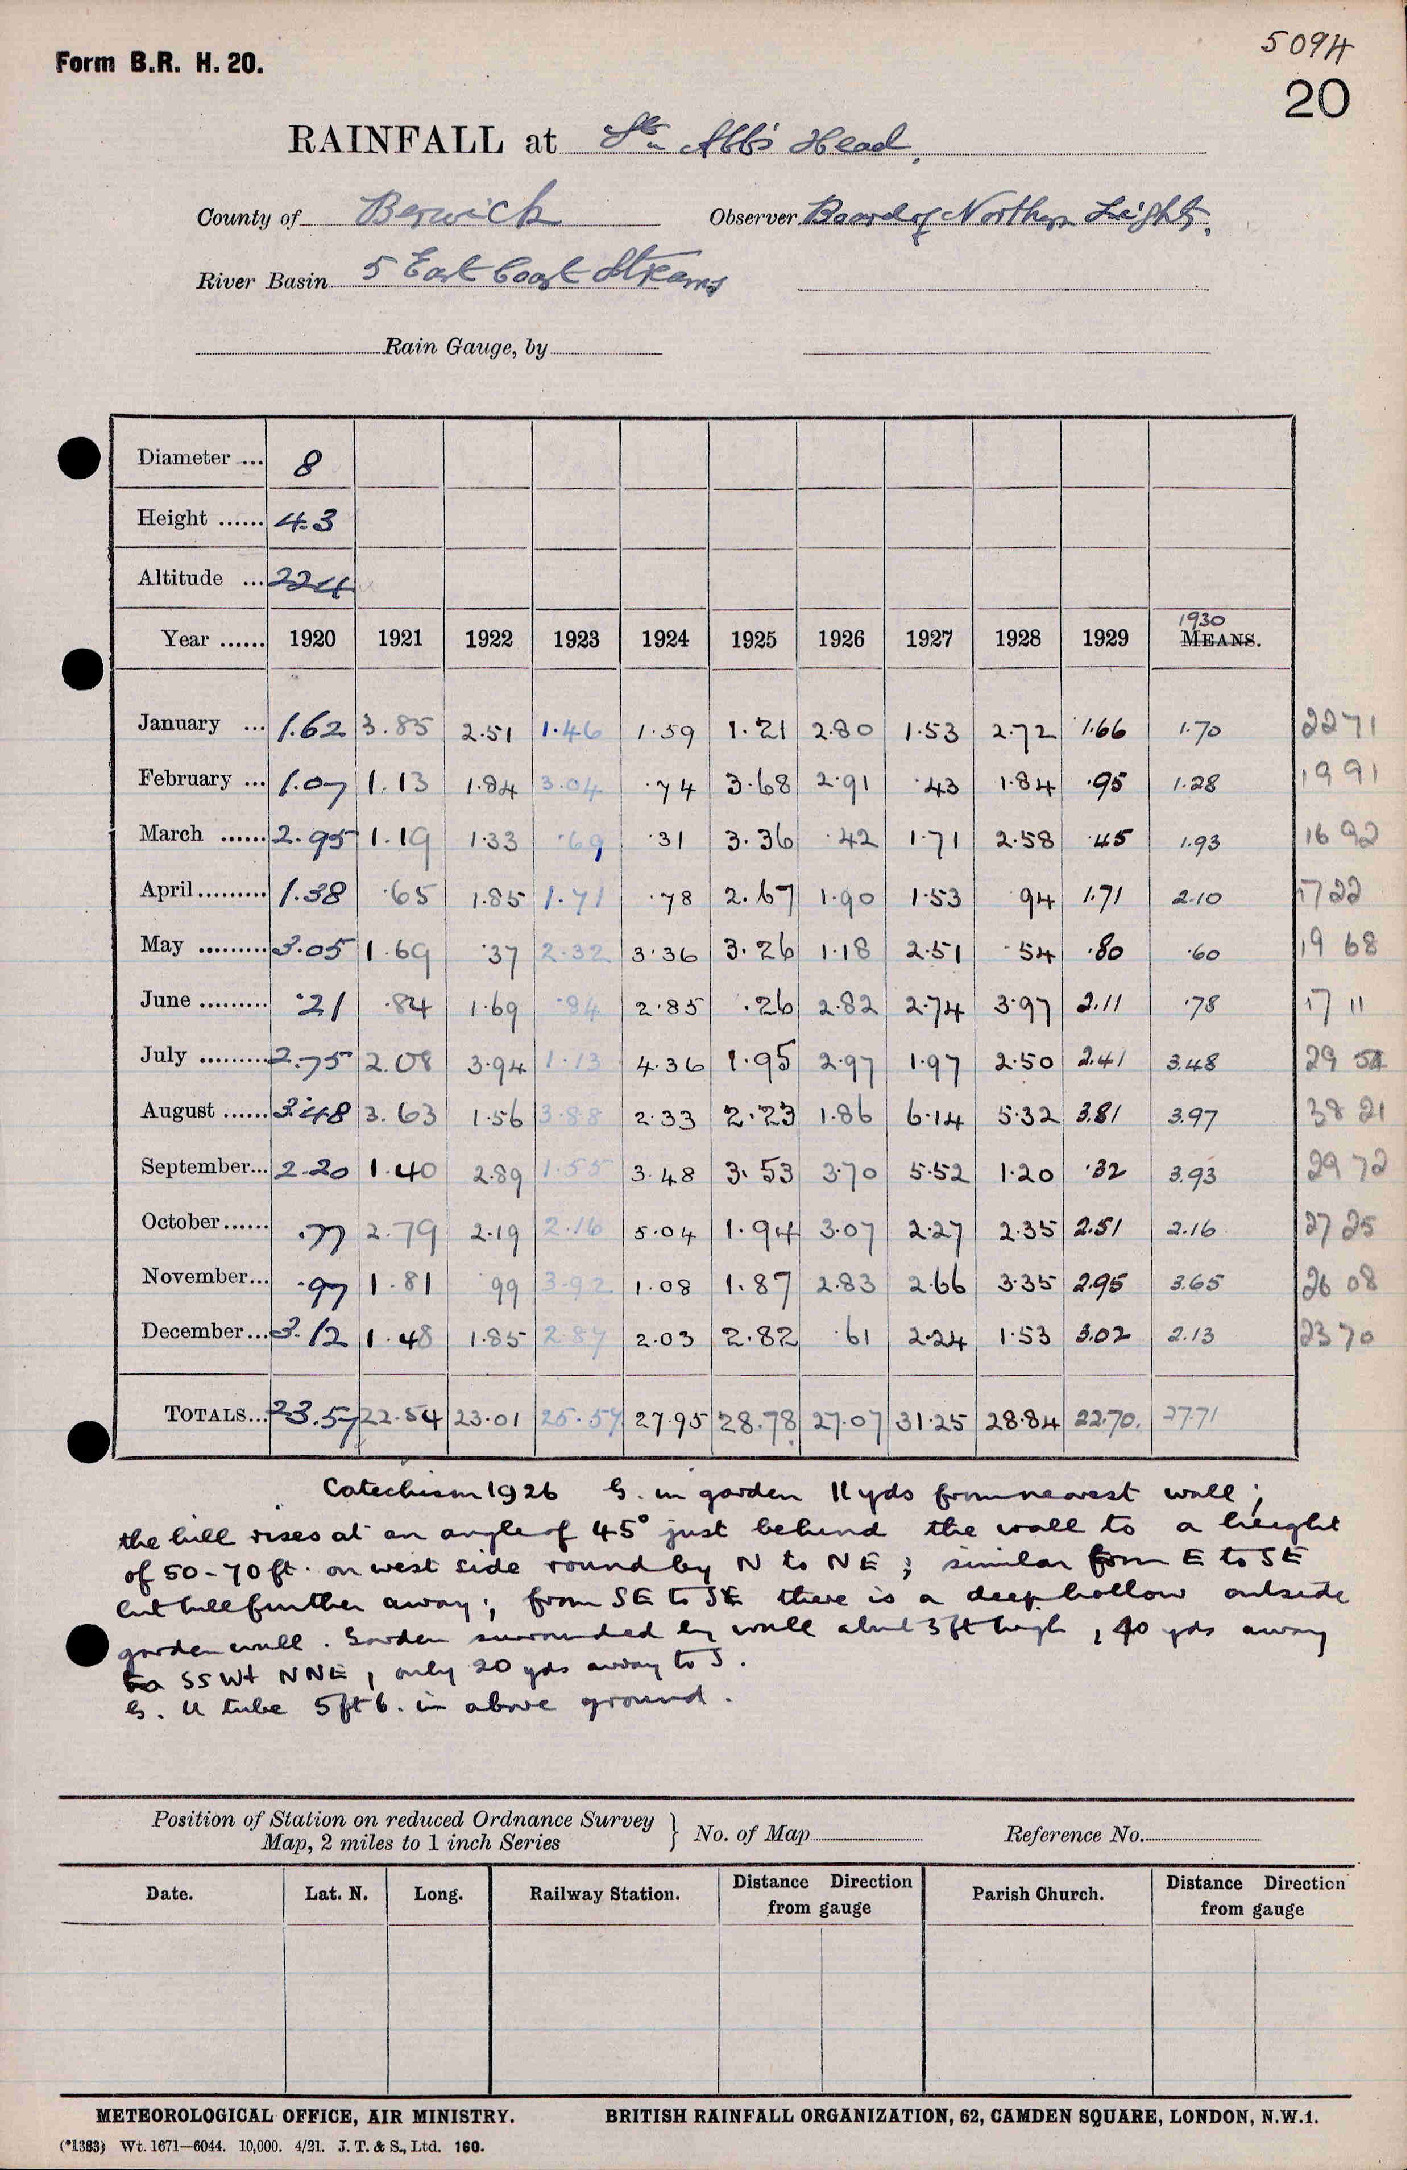 5094
Form B.R. H. 20.
20
RAINFALL at St. Abb's Head.
County of Berwick Observer Board of Northern Lights.
River Basin 5 East Coast Streams
Rain Gauge, by
Diameter ... 8
Height ...... 4.3
Altitude ... 224
1930
Year ...... 1920 1921 1922 1923 1924 1925 1926 1927 1928 1929 MEANS.
January ... 1.62 3.85 2.51 1.46 1.59 1.21 2.80 1.53 2.72 1.66 1.70 2271
February ... 1.07 1.13 1.84 3.04 .74 3.68 2.91 .43 1.84 .95 1.28 1991
March ...... 2.95 1.19 1.33 .69 .31 3.36 .42 1.71 2.58 .45 1.93 16 92
April ......... 1.38 .65 1.85 1.71 .78 2.67 1.90 1.53 94 1.71 2.10 1722
May ......... 3.05 1.69 .37 2.32 3.36 3.26 1.18 2.51 .54 .80 .60 19 68
June ......... .21 .84 1.69 .94 2.85 .26 2.82 2.74 3.97 2.11 .78 17 11
July ......... 2.75 2.08 3.94 1.13 4.36 1.95 2.97 1.97 2.50 2.41 3.48 29 54
August ...... 3.48 3.63 1.56 3.88 2.33 2.23 1.86 6.14 5.32 3.81 3.97 38 21
September... 2.20 1.40 2.89 1.55 3.48 3.53 3.70 5.52 1.20 .32 3.93 29 72
October...... .77 2.79 2.19 2.16 5.04 1.94 3.07 2.27 2.35 2.51 2.16 27 25
November... .97 1.81 .99 3.92 1.08 1.87 2.83 2.66 3.35 2.95 3.65 26 08
December... 3.12 1.48 1.85 2.87 2.03 2.82 .61 2.24 1.53 3.02 2.13 23 70
TOTALS... 23.57 22.54 23.01 25.57 27.95 28.78 27.07 31.25 28.84 22.70. 27.71
Catechism 1926 G. in garden 11 yds from nearest wall;
the hill rises at an angle of 45° just behind the wall to a height
of 50-70 ft. on west side round by N to NE; similar from E to SE
but hill further away; from SE to there is a deep hollow outside
garden wall. Garden surrounded by wall about 3 ft high, 40 yds away
to SSW + NNE, only 20 yds away to S.
G. U tube 5 ft 6. in above ground.
Position of Station on reduced Ordnance Survey
Map, 2 miles to 1 inch Series } No. of Map Reference No.
Date. Lat. N. Long. Railway Station. Distance Direction from gauge Parish Church. Distance Direction from gauge
METEOROLOGICAL OFFICE, AIR MINISTRY. BRITISH RAINFALL ORGANIZATION, 62, CAMDEN SQUARE, LONDON, N.W.1.
(*1383) Wt. 1671—6044. 10,000. 4/21. J. T. & S., Ltd. 160.